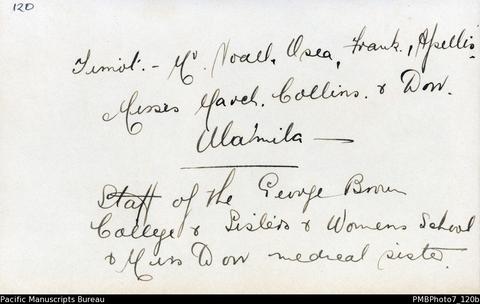 120
Timot. - Mr. Noall, Osea, Frank, Apellis.
Misses March, Collins. & Dow.
Ulamila —
Staff of the George Brown
College & Sisters & Womens School
& Miss Dow medical sister.
Pacific Manuscripts Bureau
PMBPhoto7_120b